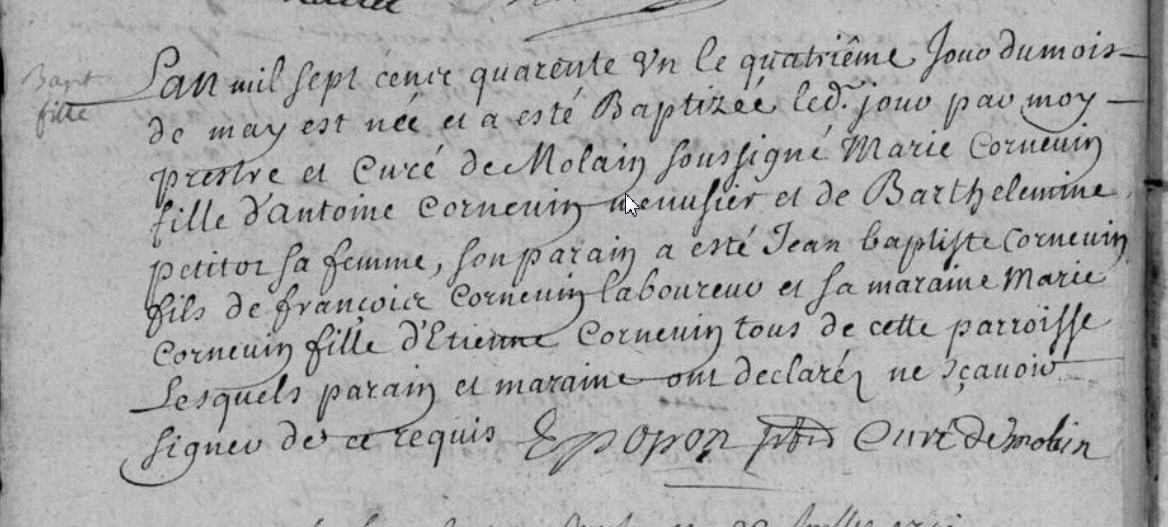 Bapt
fille
Lan mil sept cent quarente Un le quatriême Jour du mois
de may est néé et a esté Baptizéé led. jour par moy
prestre et Curé de Molain soussigné Marie Cornevin
fille d'Antoine Cornevin menusier et de Barthelemine
petitot sa femme, son parain a esté Jean baptiste Cornevin
fils de françois Cornevin laboureur et sa maraine Marie
Cornevin fille d'Etienne Cornevin tous de cette parroisse
Lesquels parain et maraine ont declaréz ne sçavoir
signer de ce requis pbre Curé de molain